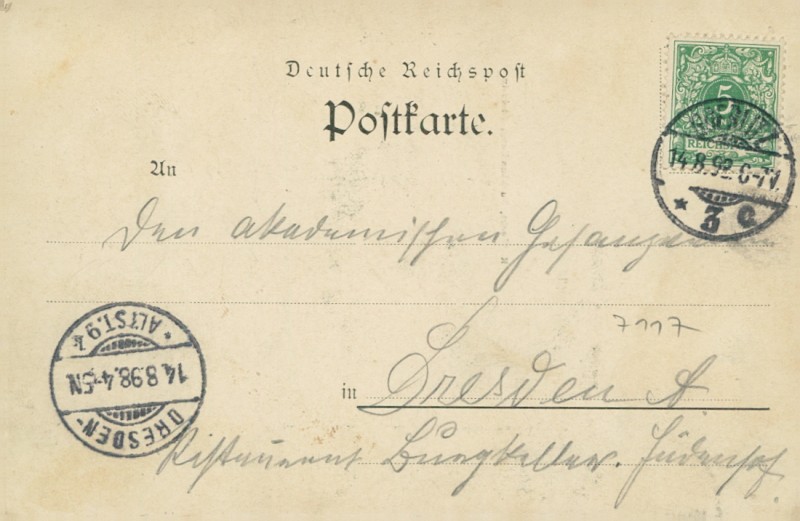 Deutsche Reichspost
Postkarte.
5
REICHSPOST
14.8.98. 6-7V.
* 3 c
An
Den akademischen
7117
in Dresden A
Restaurant Burgkeller. Jüdenhof.
* ALTST. 9 k
14.8.98. 4-5N
DRESDEN-